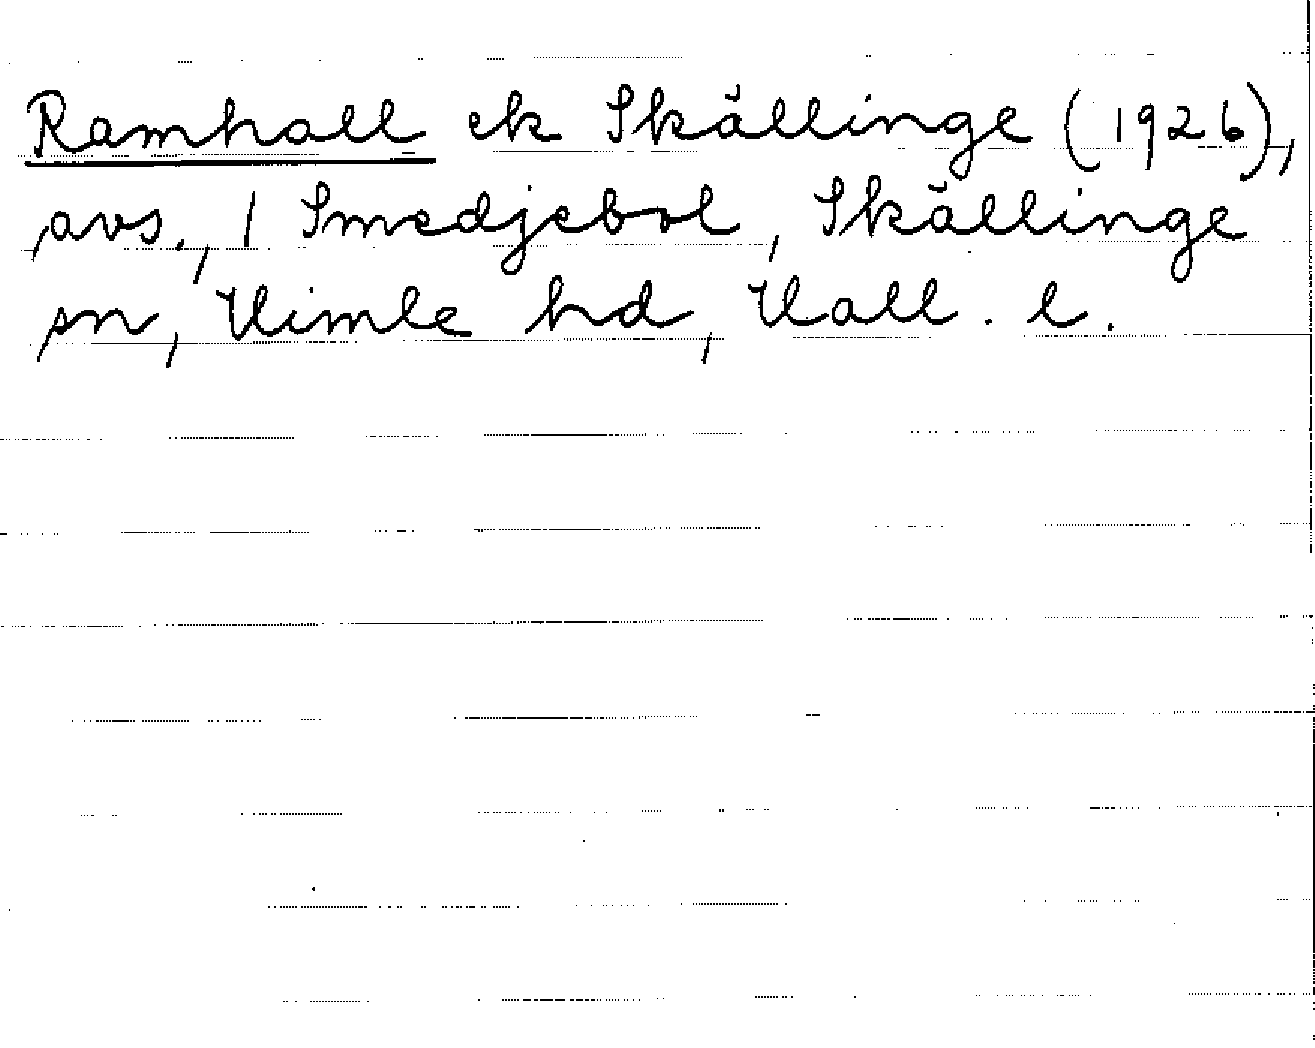 Ramhall ek Skällinge (1926),
avs., 1 Smedjebol, Skällinge
sn, Himle hd, Hall. l.